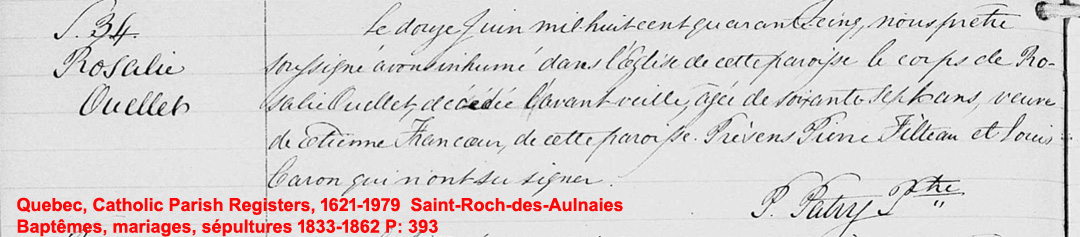 S. 34.
Rosalie
Ouellet
Le douze Juin mil huit cent quarante cinq, nous prêtre
soussigné avons inhumé dans l'Eglise de cette paroisse le corps de Ro-
salie Ouellet, décédée l'avant veille, agée de soixante sept ans, veuve
de Etienne Francoeur, de cette paroisse. Présens Pierre Filteau et Louis
Caron qui n'ont su signer.
P. Patry Ptre
Quebec, Catholic Parish Registers, 1621-1979 Saint-Roch-des-Aulnaies
Baptêmes, mariages, sépultures 1833-1862 P: 393